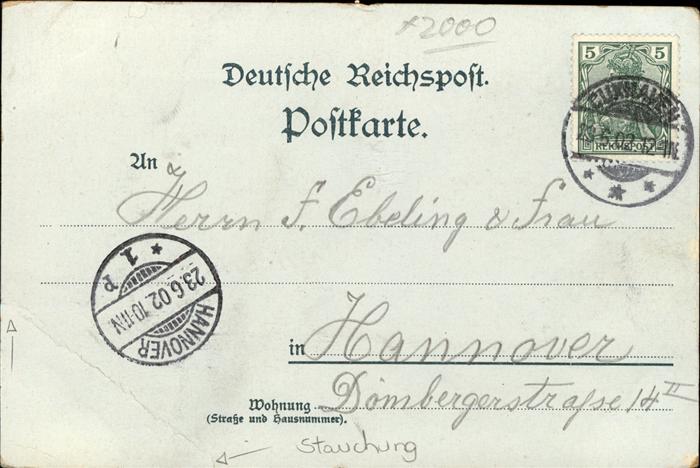 x2000
5 5
REICHSPOST
CUXHAVEN
23.6.02.12-1N.
Deutsche Reichspost.
Postkarte.
An
Herrn F. Ebeling & Frau
HANNOVER
23.6.02.10-11N.
1 P
in Hannover
Dömbergerstraße 14 II
Wohnung
(Straße und Hausnummer).
Stauchung